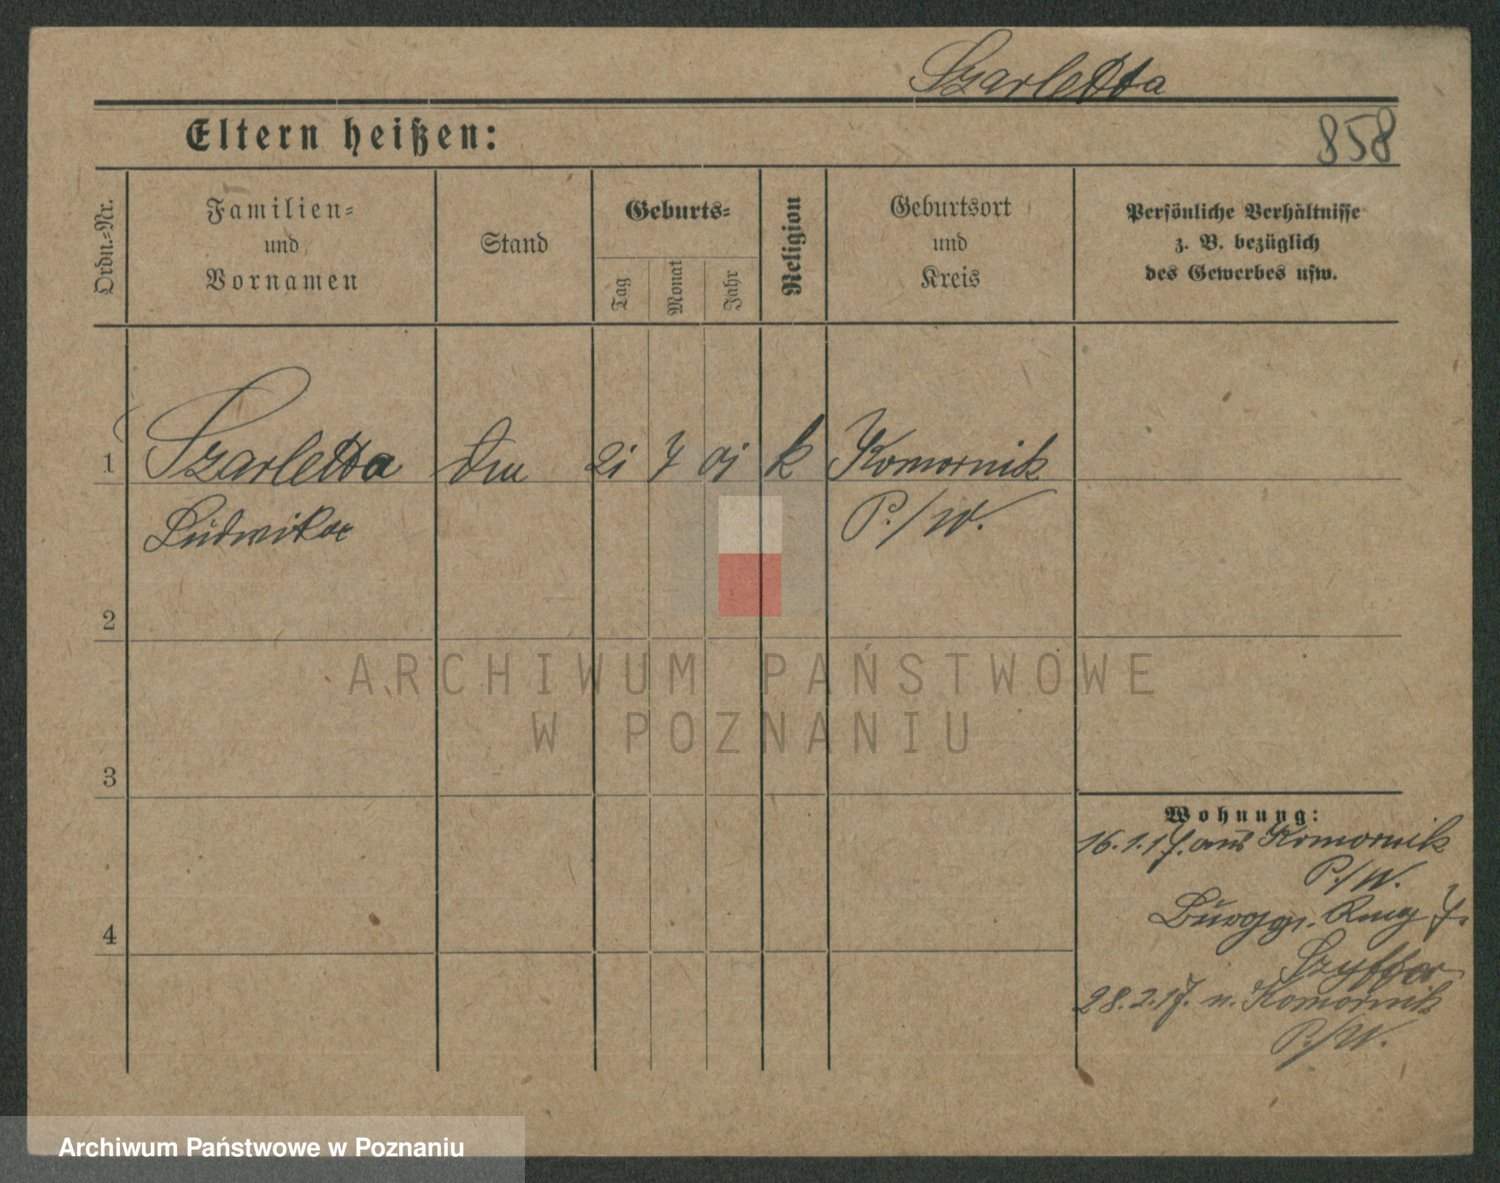 Szarletta
Eltern heißen:
858
Ordn.-Nr.
Familien-
und
Vornamen
Stand
Geburts-
Tag
Monat
Jahr
Religion
Geburtsort
und
Kreis
Persönliche Verhältnisse
z. B. bezüglich
des Gewerbes usw.
1 Szarletta 7 k Komornik
Ludwika P./W.
2
ARCHIWUM PAŃSTWOWE
W POZNANIU
3
Wohnung:
16.1.17. aus Komornik
P./W.
4
28.2.17. n. Komornik
P./W.
Archiwum Państwowe w Poznaniu